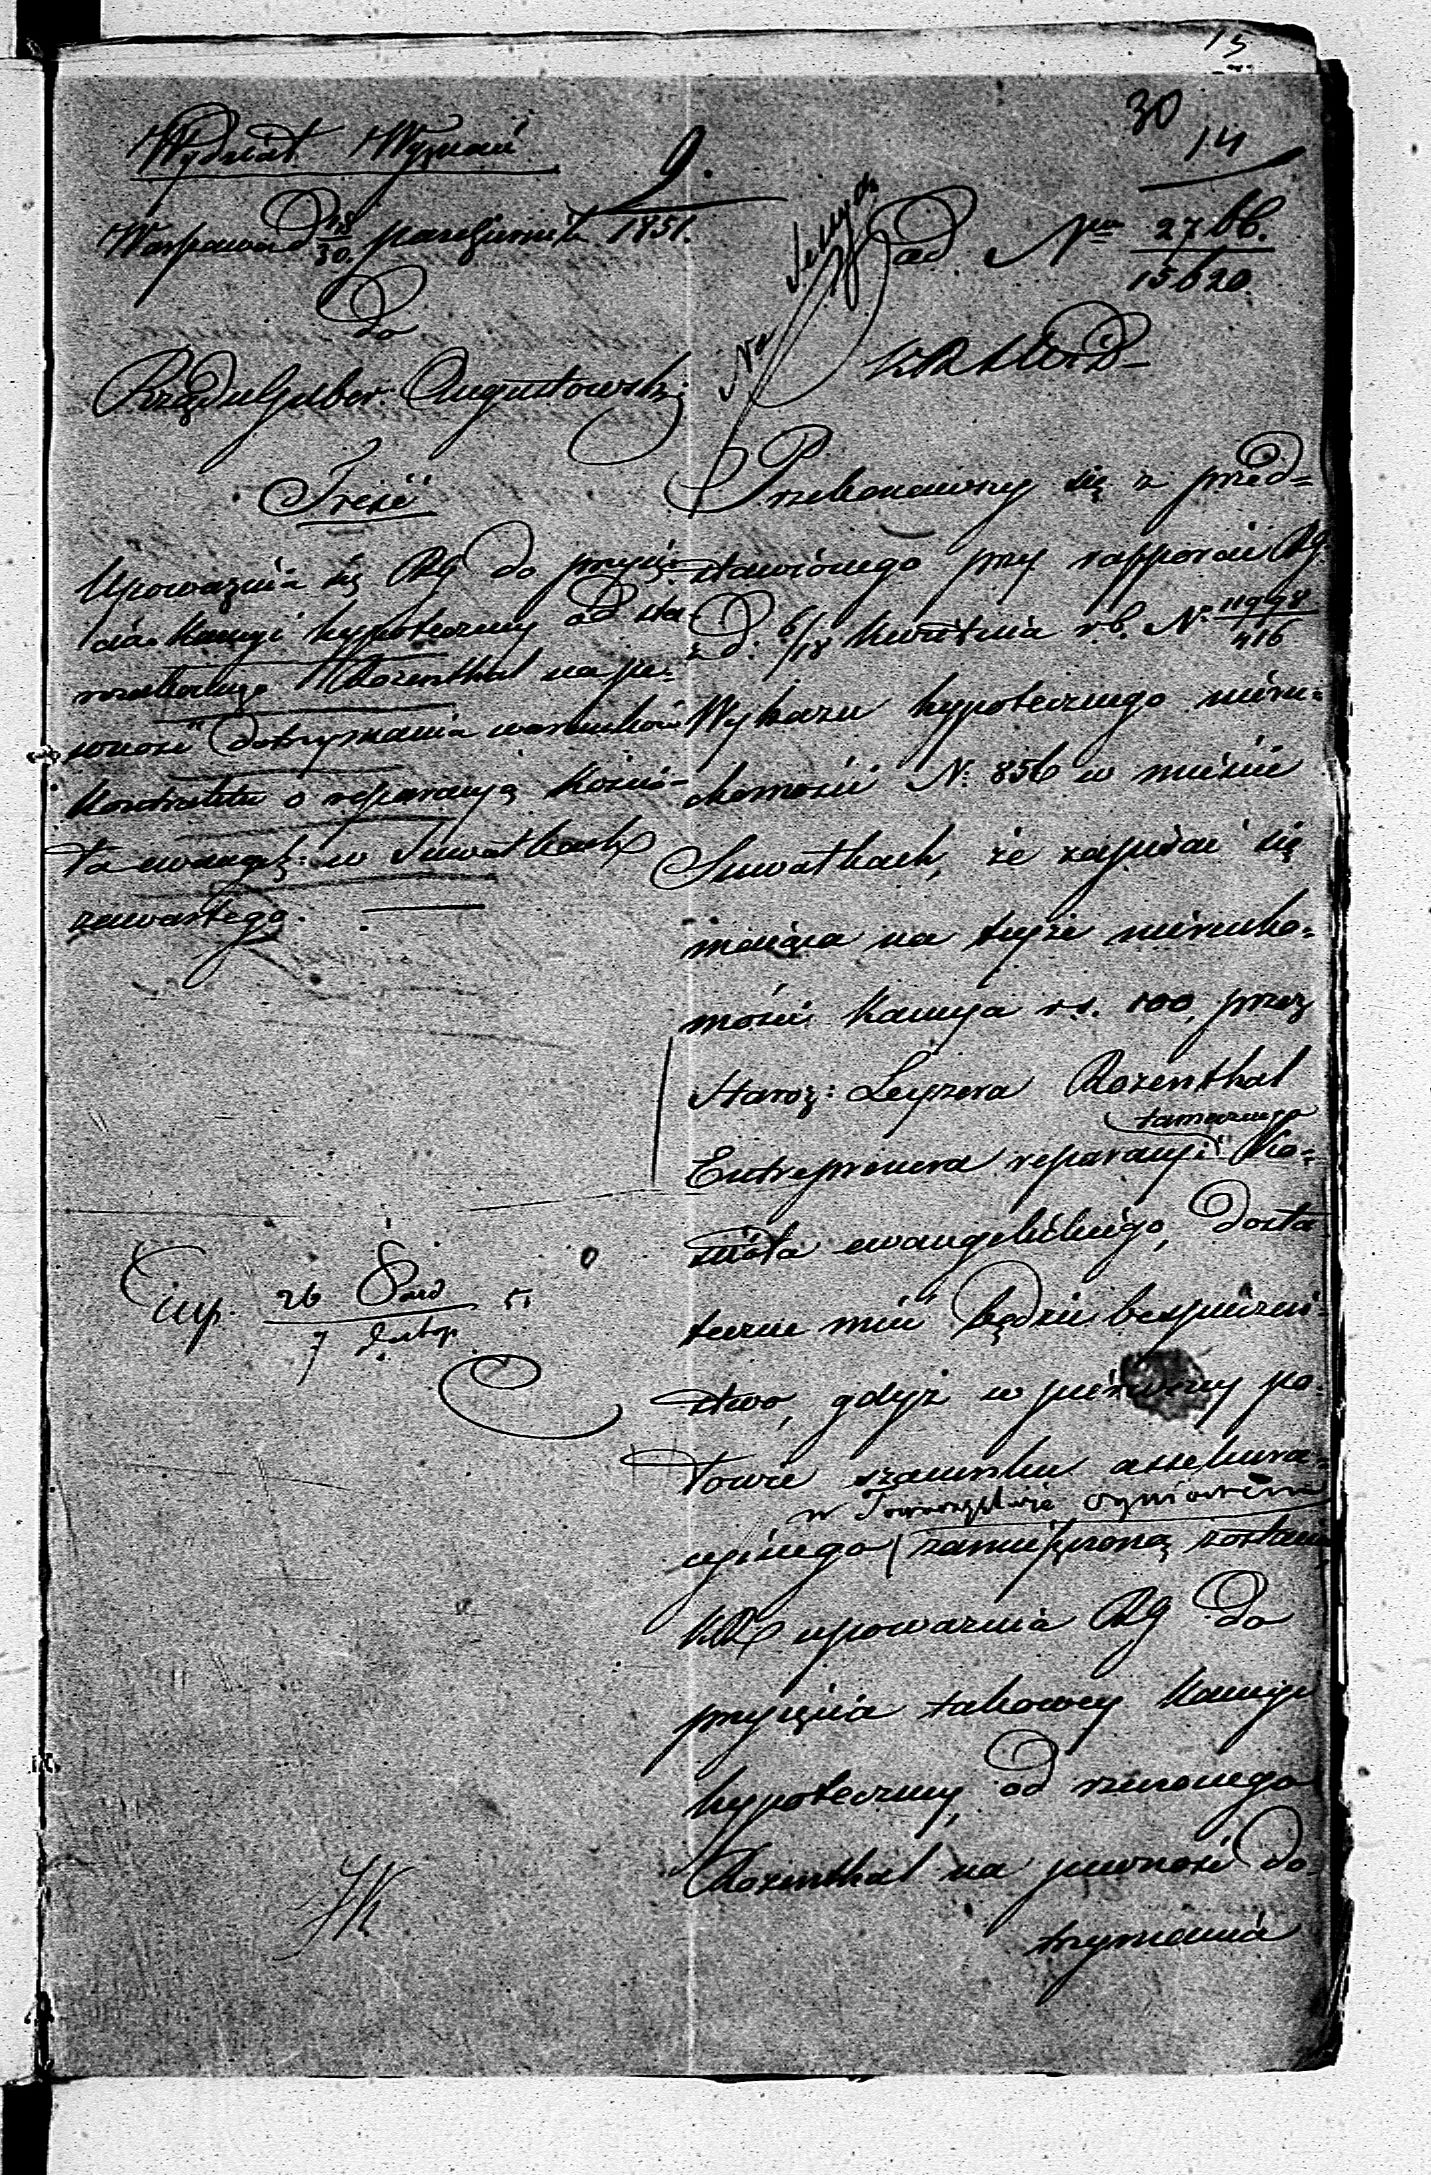 15
30
14
Wydział Wyznań
9.
Warszawa d 18/30 października 1851.
do
Rządu Guber: Augustowski:
Treść
Upoważnia się RG do przyję-
cia Kaucyi hypoteczney od sta-
rozakonnego Rozenthal na pe-
wność dotrzymania warunków
Kontraktu o reparacyą Kościo-
ła ewangel: w Suwałkach
zawartego.
Exp. 26 Paźd / 7 51
ad Nrm 2766. / 15620
Przekonawszy się z przed-
stawionego przy rapporcie RG
z d. 6/18 kwietnia r.b. N. 11998 / 416
Wykazu hypotecznego nieru-
chomości N. 856 w mieście
Suwałkach, że zapisać się
mająca na teyże nierucho-
mości Kaucya r.s. 100, przez
Staroz: Leyzera Rozenthal
tamecznego
Entreprenera reparacyi Ko-
ścioła ewangelickiego, dosta
teczne mieć będzie bezpieczeń-
stwo, gdyż w pierwszey po-
łowie szacunku assekura-
w Towarzystwie Ogniowém
cyjnego zamieszczoną zostanie
KR upoważnia RG do
przyjęcia takowey Kaucyi
hypoteczney, od rzeczonego
Rozenthal na pewność do-
trzymania